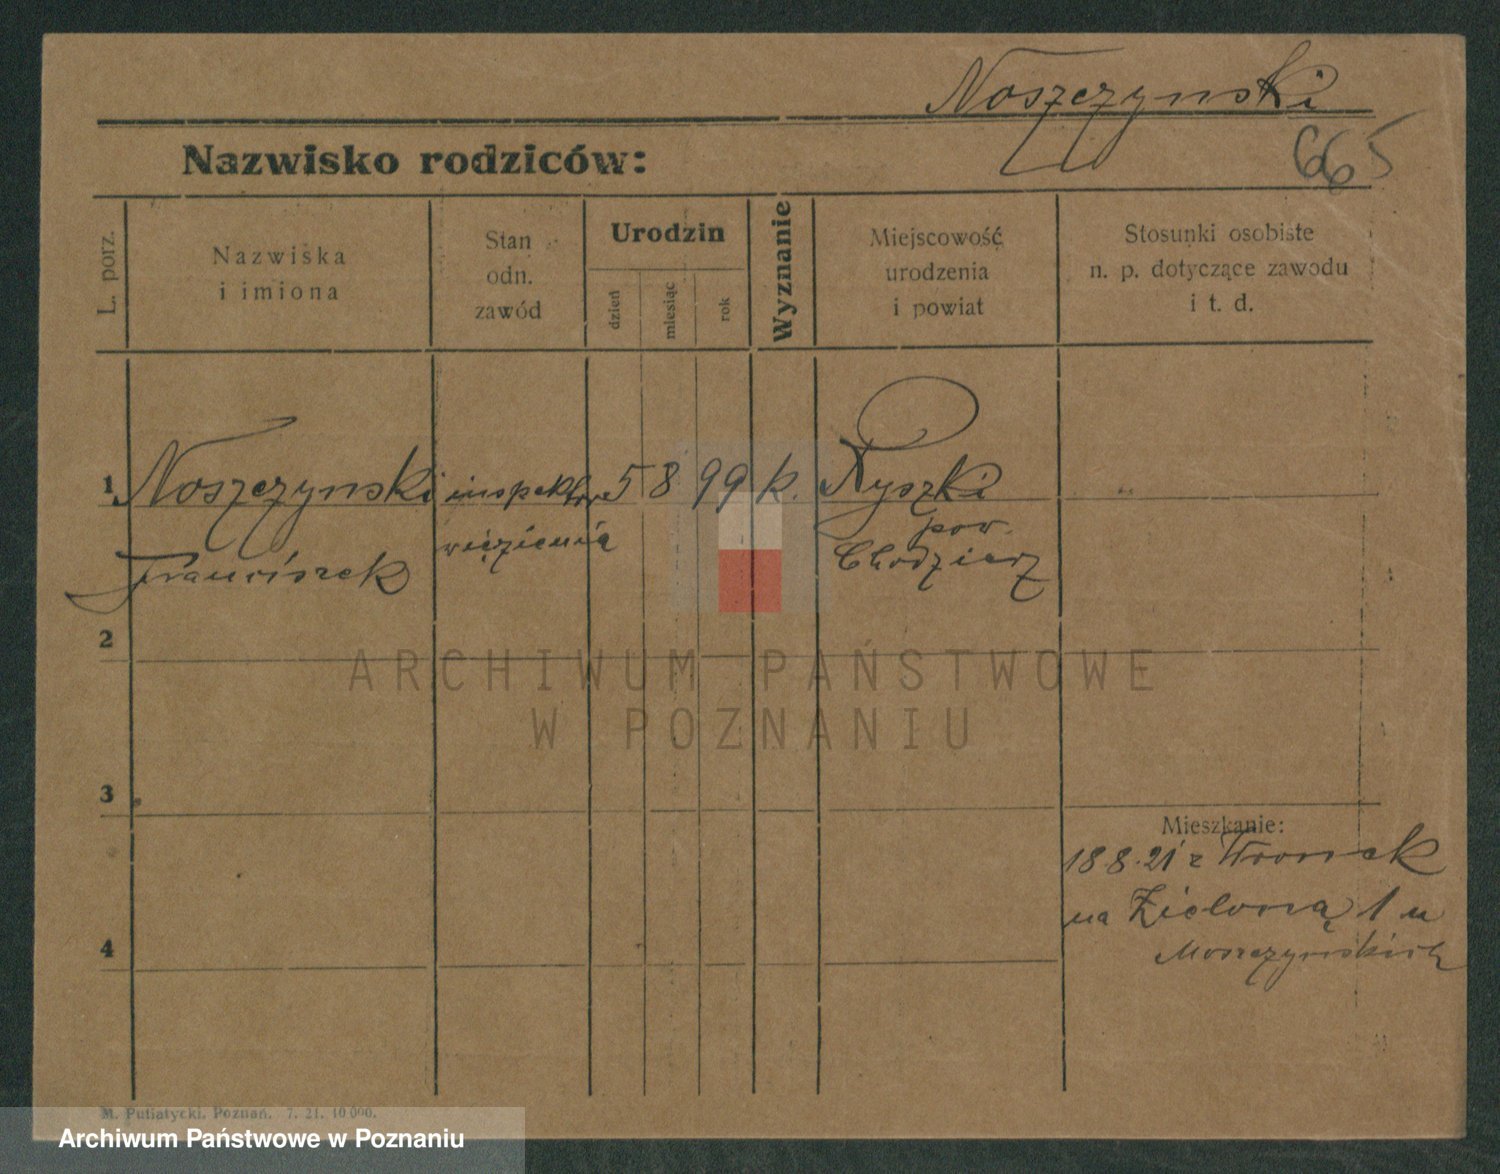 Noszczynski
665
Nazwisko rodziców:
L. porz.
Nazwiska
i imiona
Stan
odn.
zawód
Urodzin
dzień
miesiąc
rok
Wyznanie
Miejscowość
urodzenia
i powiat
Stosunki osobiste
n. p. dotyczące zawodu
i t. d.
1 Noszczynski inspektor 5 8 99 k. Ryszki
więzienia pow.
Franciszek Chodzież
2
ARCHIWUM PAŃSTWOWE
W POZNANIU
3
Mieszkanie:
18 8. 21 z Wronek
na Zieloną 1 u
4
M. Putiatycki, Poznań. 7. 21. 10 000.
Archiwum Państwowe w Poznaniu